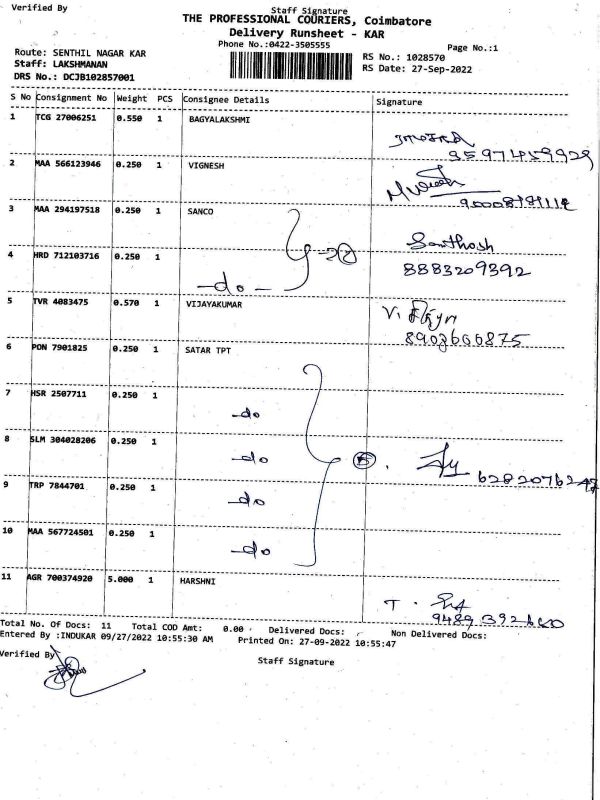 Verified By
Staff Signature
THE PROFESSIONAL COURIERS, Coimbatore
Delivery Runsheet - KAR
Phone No.:0422-3505555
Page No.:1
Route: SENTHIL NAGAR KAR
Staff: LAKSHMANAN
DRS No.: DCJB102857001
RS No.: 1028570
RS Date: 27-Sep-2022
S No Consignment No Weight PCS Consignee Details Signature
1 TCG 27006251 0.550 1 BAGYALAKSHMI
2 MAA 566123946 0.250 1 VIGNESH
3 MAA 294197518 0.250 1 SANCO
Santhosh
4 HRD 712103716 0.250 1
8883209392
-do-
5 TVR 4083475 0.570 1 VIJAYAKUMAR
8903666875
6 PON 7901825 0.250 1 SATAR TPT
7 HSR 2507711 0.250 1
-do
8 SLM 304028206 0.250 1
-do
9 TRP 7844701 0.250 1
-do
10 MAA 567724501 0.250 1
-do
11 AGR 700374920 5.000 1 HARSHNI
Total No. Of Docs: 11 Total COD Amt: 0.00 Delivered Docs: Non Delivered Docs:
Entered By :INDUKAR 09/27/2022 10:55:30 AM Printed On: 27-09-2022 10:55:47
Verified By
Staff Signature